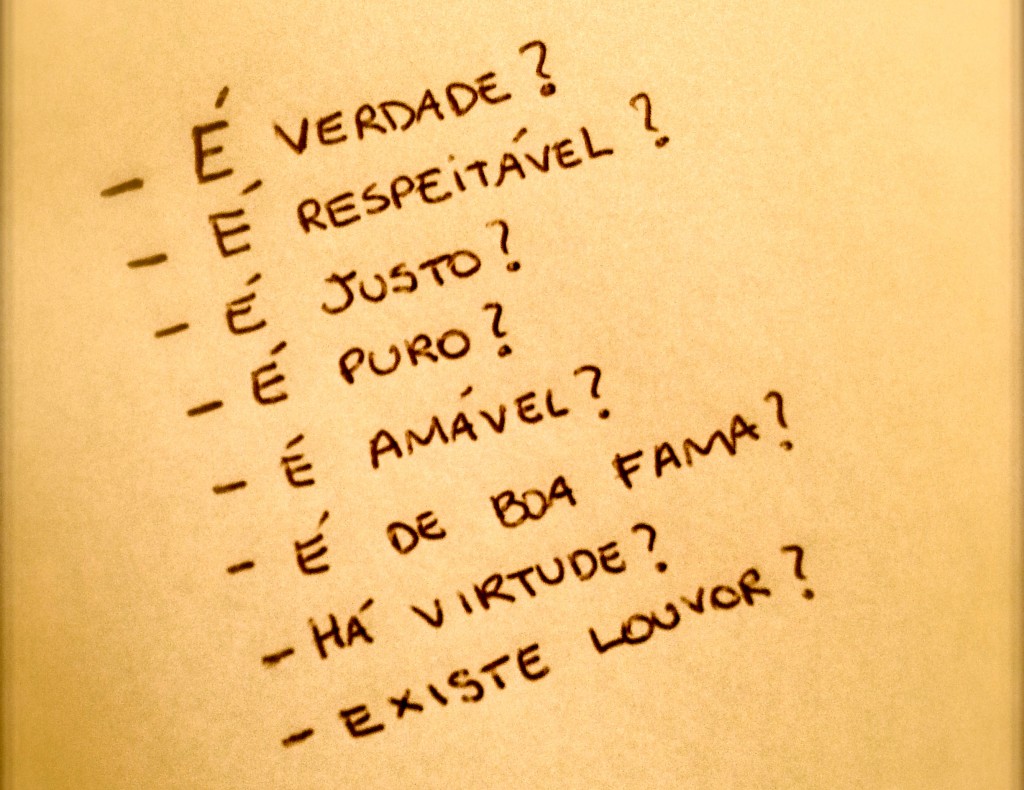 - É VERDADE?
- É RESPEITÁVEL?
- É JUSTO?
- É PURO?
- É AMÁVEL?
- É DE BOA FAMA?
- HÁ VIRTUDE?
- EXISTE LOUVOR?